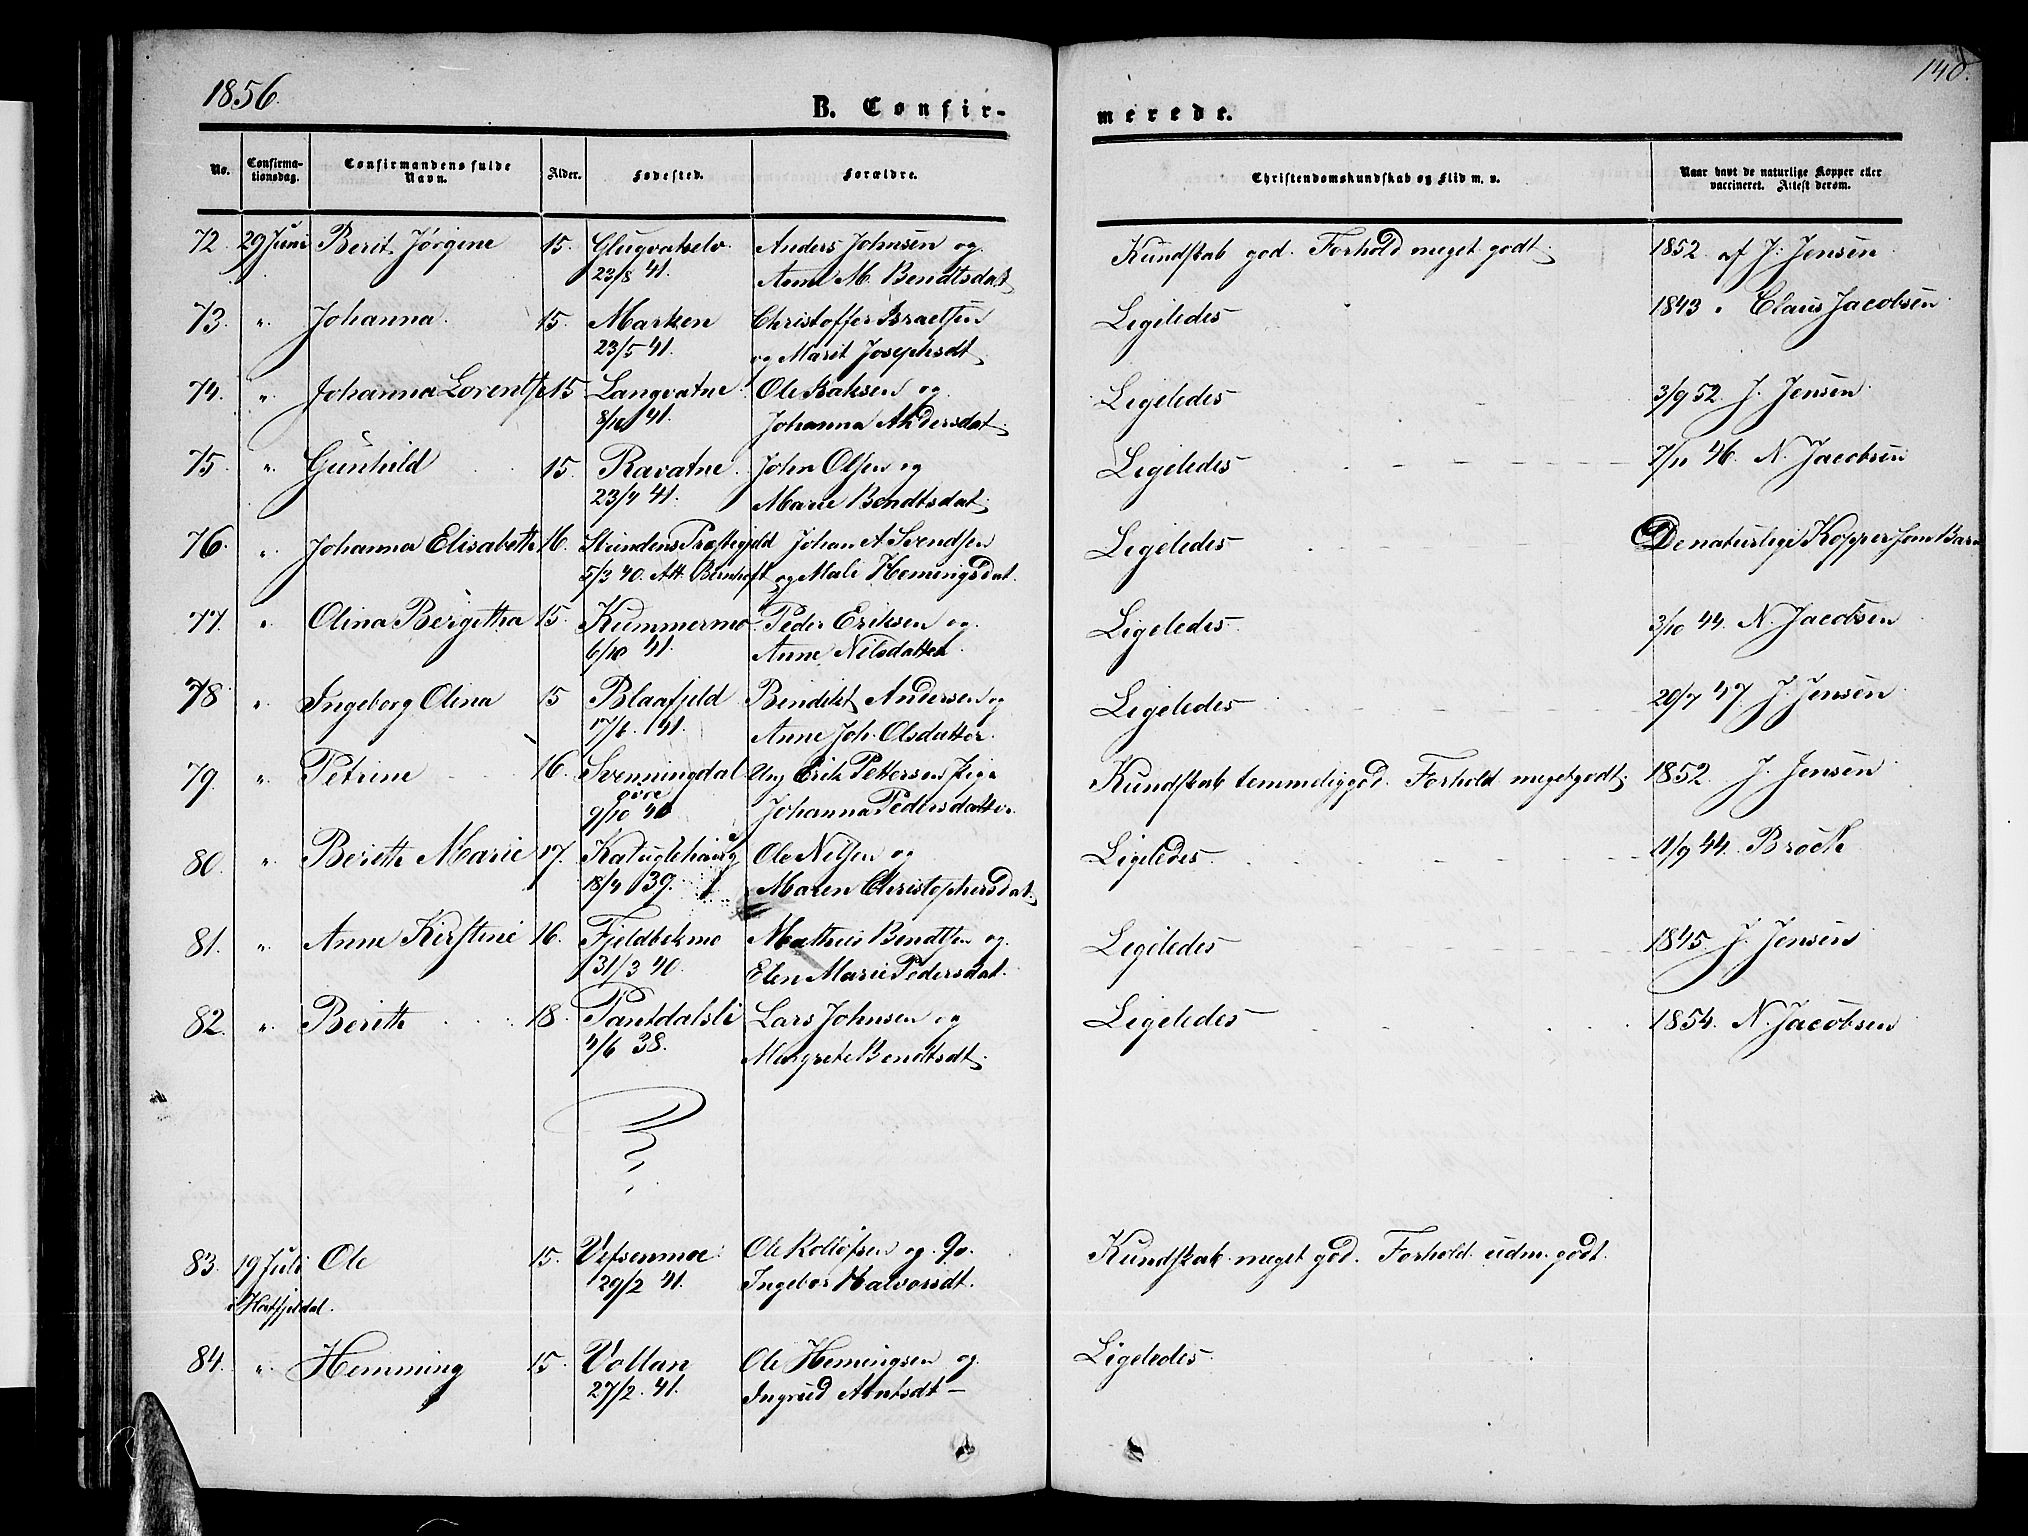 1856.
140.
B. Confir-
merede.
No.
Confirma-
tionsdag.
Confirmandens fulde
Navn.
Alder.
Fødested.
Forældre.
Christendomskundskab og Flid m. v.
Naar havt de naturlige Kopper eller
vaccineret. Attest derom.
72. 29 Juni Berit Jørgine 15. Glugvatselv Anders Johnsen og Kundskab god. Forhold meget godt. 1852 af J. Jensen
23/8 41. Anne M. Bendtsdat
73. " Johanna 15. Marken Christoffer Israelsen Ligeledes 1843 " Claus Jacobsen
23/5 41. og Marit Josephsdt
74. " Johanna Lorentse 15 Langvatne Ole Isaksen og Ligeledes 3/9 52. J. Jensen
41. Johanna Andersdat.
75. " Gunhild 15 Ravatne John Olsen og Ligeledes 7/11 46. N. Jacobsen
23/4 41. Marie Bendtsdat.
76. " Johanna Elisabeth 16. Præstegjeld Johan A Svendsen Ligeledes De naturlige Kopper som Barn
5/3 40. Att. og Mali Hemingsdat.
77. " Olina Bergitha 15. Kummermo Peder Eriksen og Ligeledes. 3/10 44. N. Jacobsen
6/10 41. Anne Nilsdatter
78 " Ingeborg Olina 15 Blaafjeld Bendikt Andersen og Ligeledes 20/7 47. J. Jensen
17/6. 41. Anne Joh. Olsdatter.
79. " Petrine 16. Svenningdal Ung. Erik Pettersen Pige Kundskab temmelig god. Forhold meget godt. 1852. J. Jensen
øvre
9/10 40 Johanna Pedersdatter
80. " Berith Marie 17. Ole Nilsen og Ligeledes. 11/9 44. Broch
18/4 39. Maren Christophersdat.
81. " Anne Kirstine 16. Fjeldbekmo Mathias Bendtsen og Ligeledes 1845. J. Jensen
31/3 40. Elen Marie Pedersdat.
82. " Berith 18. Pantdalsli Lars Johnsen og Ligeledes 1854. N. Jacobsen
4/6 38. Margrete Bendtsdt.
83. 19 Juli Ole 15. Vefsenmoe Ole Rolløfsen og Kundskab meget god. Forhold udm. godt.
29/2 41. Ingebor Halvorsdt.
i Hatfjeldal.
84. " Hemming 15. Vollan Ole Hemingsen og Ligeledes.
27/2. 41. Ingrid Arntsdt